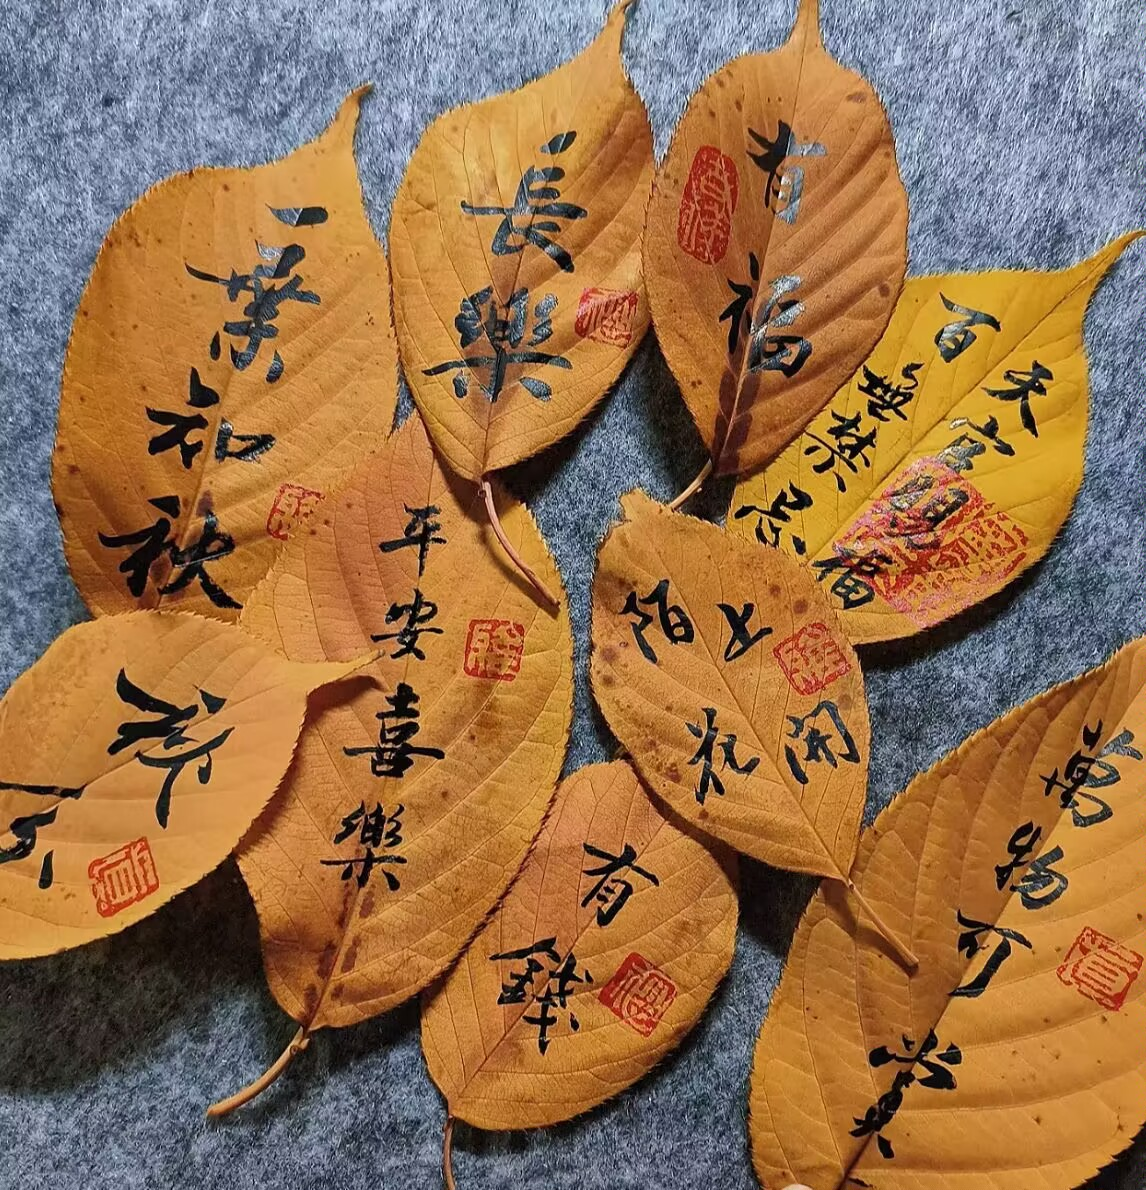 一葉知秋
長樂
有福
天官賜福
百無禁忌
平安喜樂
陌上
花開
有錢
萬物可賞